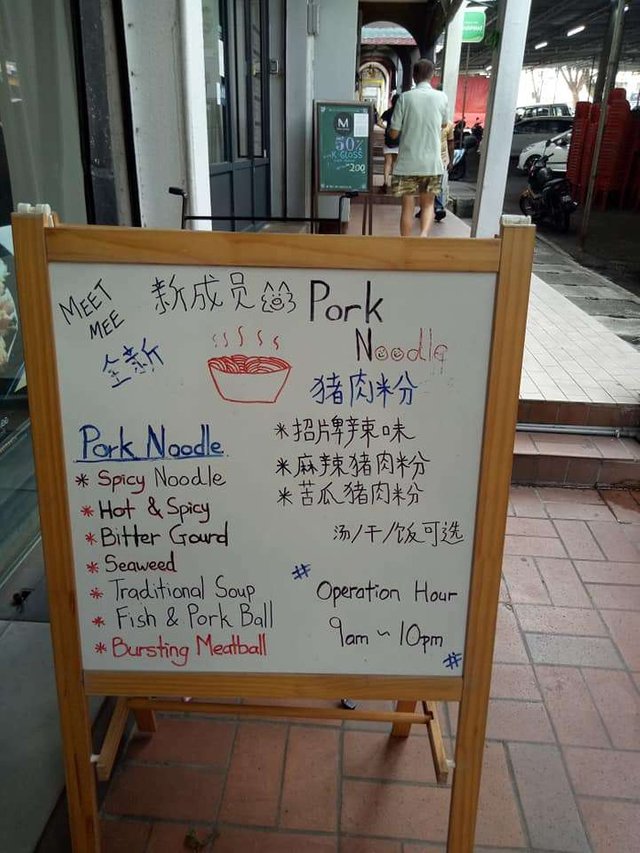 MEET
MEE
新成员
Pork
Noodle
全新
猪肉粉
Pork Noodle
* Spicy Noodle
* Hot & Spicy
* Bitter Gourd
* Seaweed
* Traditional Soup
* Fish & Pork Ball
* Bursting Meatball
*招牌辣味
*麻辣猪肉粉
*苦瓜猪肉粉
汤/干/饭可选
# Operation Hour
9am ~ 10pm #
M
50%
K GLOSS
200